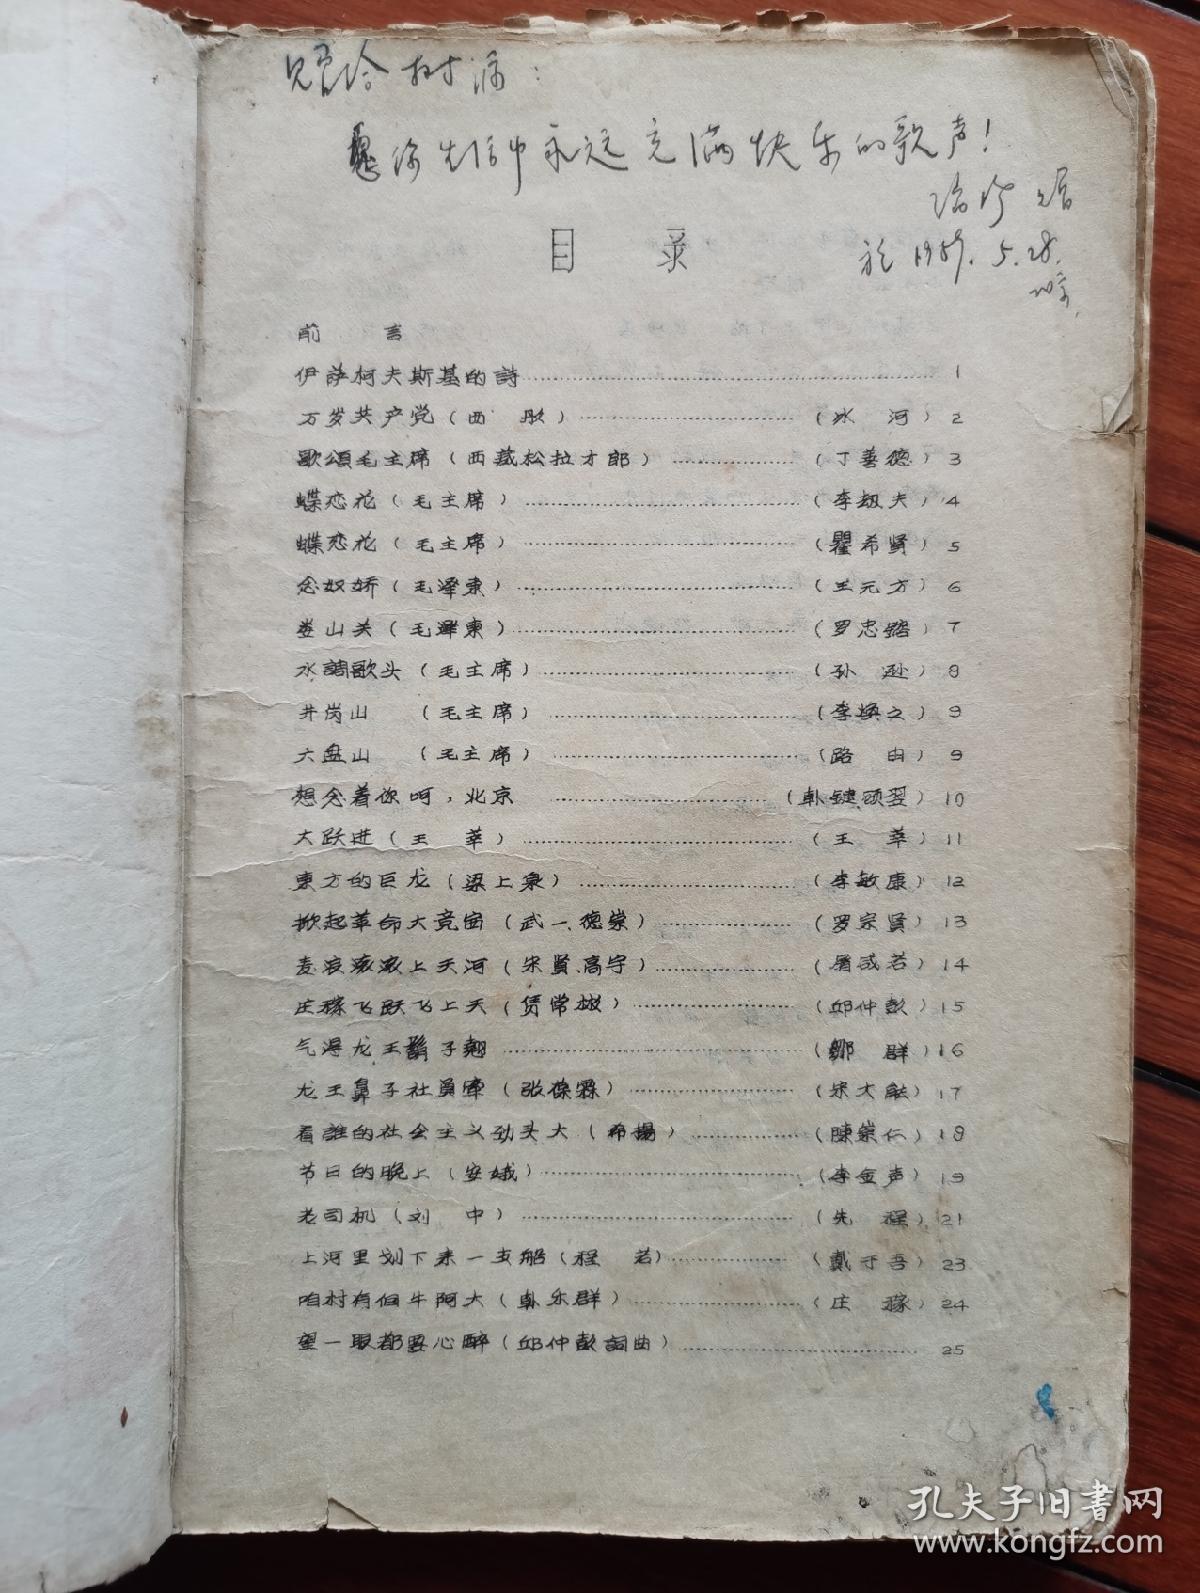 赠给树源：
愿你生活中永远充满快乐的歌声！
赠
於1959.5.28.
目 录
前 言
伊萨柯夫斯基的詩 1
万岁共产党（西彤）（冰河）2
歌頌毛主席（西藏松拉才郎）（丁善德）3
蝶恋花（毛主席）（李劫夫）4
蝶恋花（毛主席）（瞿希贤）5
念奴娇（毛澤東）（王元方）6
娄山关（毛澤東）（罗忠鎔）7
水調歌头（毛主席）（孙逊）8
井岗山（毛主席）（李焕之）9
六盘山（毛主席）（路由）9
想念着你呵，北京 10
大跃进（王莘）（王莘）11
東方的巨龙（梁上泉）（李敏康）12
掀起革命大竞宙（武一、德崇）（罗宗贤）13
麦浪滚滚上天河（宋贤、高宇）（屠咸若）14
庄稼飞跃飞上天（賃常彬）（邱仲彭）15
气得龙王鬍子翹（鄒群）16
龙王鼻子社員牽（张葆霖）（宋大能）17
看誰的社会主义劲头大（希揚）（陳崇仁）18
节日的晚上（安娥）（李金声）19
老司机（刘中）（先程）21
上河里划下来一支船（程若）（戴于吾）23
咱村有個牛阿大（卦乐群）（庄稼）24
望一眼都要心醉（邱仲彭詞曲）25
孔夫子旧書网
www.kongfz.com